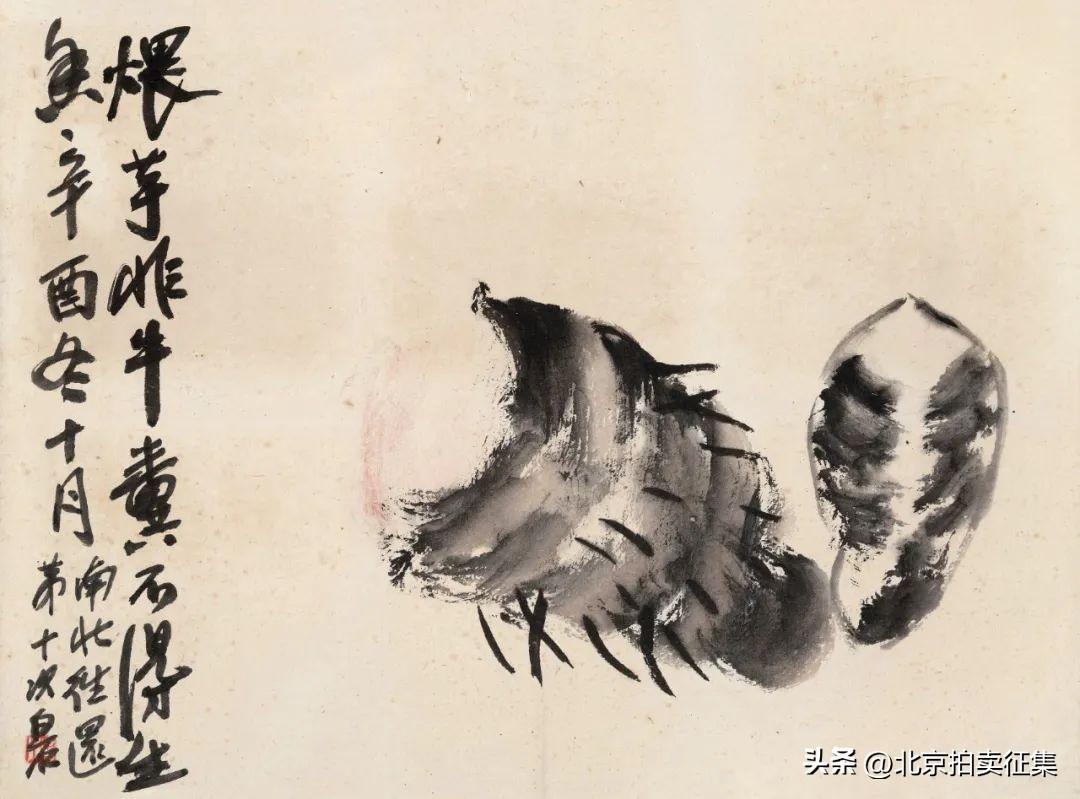 煨芋非牛糞不得生
香、辛酉冬十月
南北往還
第十次白石
头条 @北京拍卖征集